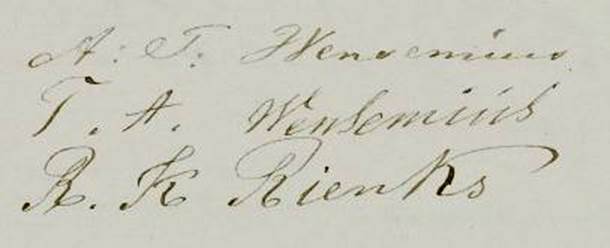 A: T: Wensenius
T. A. Wensenius
R. K Rienks